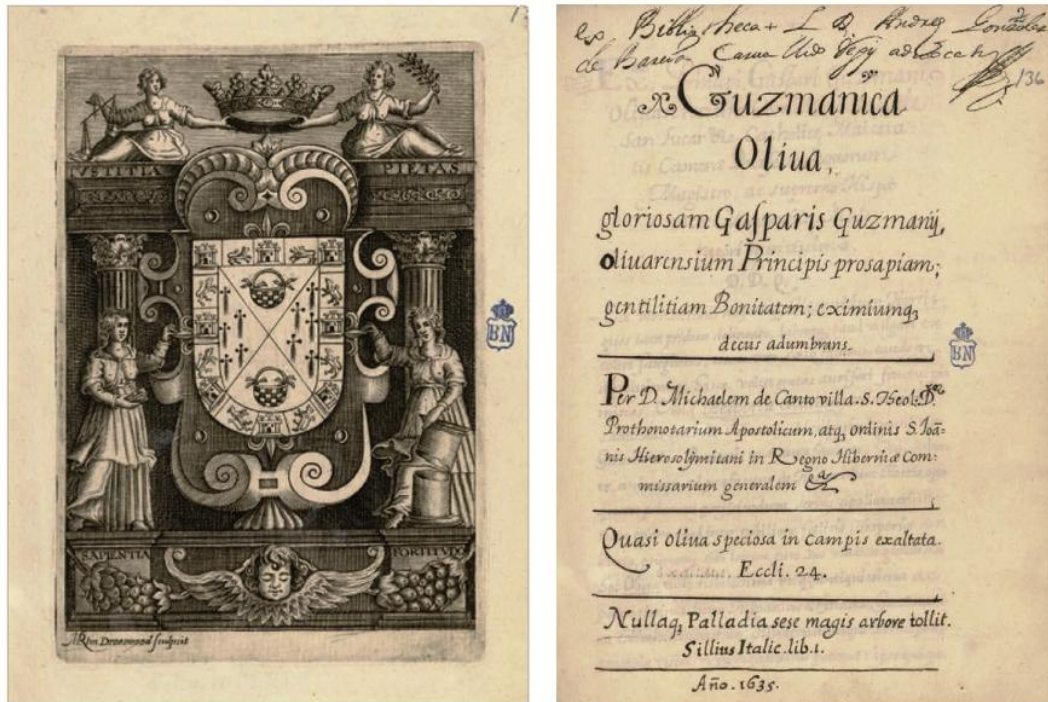 IVSTITIA PIETAS
SAPIENTIA FORTITVDO
sculpsit
BN
136
Guzmanica
Oliua,
gloriosam Gasparis Guzmanij,
oliuarensium Principis prosapiam;
gentilitiam Bonitatem; eximiumq,
decus adumbrans.
Per D. Michaelem de Cantovilla. S. Theol. D.
Prothonotarium Apostolicum, atq, ordinis S. Ioā-
nis Hierosolymitani in Regno Hiberniæ Com-
missarium generalem &a
Quasi oliua speciosa in campis exaltata.
Eccli. 24.
Nullaq, Palladia sese magis arbore tollit.
Sillius Italic. lib. 1.
Año. 1635.
BN